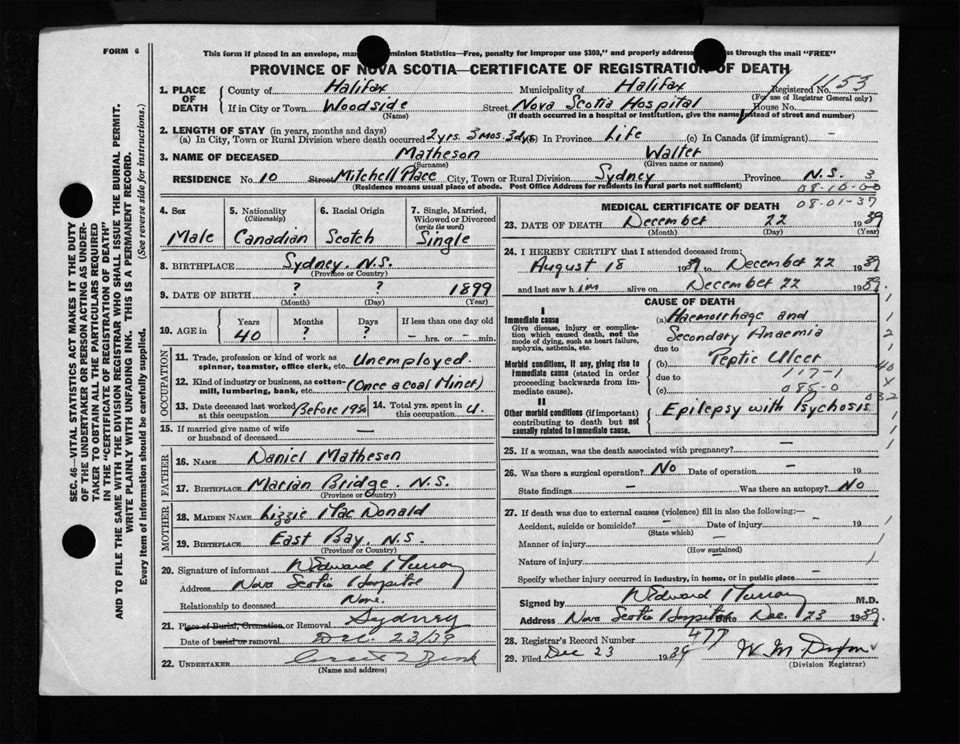 FORM 6
This form if placed in an envelope, mar minion Statistics—Free, penalty for improper use $300," and properly addresse ss through the mail "FREE"
PROVINCE OF NOVA SCOTIA—CERTIFICATE OF REGISTRATION OF DEATH
Registered No. 1153
(For use of Registrar General only)
1. PLACE OF DEATH
County of Halifax Municipality of Halifax
If in City or Town Woodside Street Nova Scotia Hospital House No.
(Name) (If death occurred in a hospital or institution, give the name instead of street and number)
2. LENGTH OF STAY (in years, months and days)
(a) In City, Town or Rural Division where death occurred 2 yrs. 3 mos. 3 dys (b) In Province Life (c) In Canada (if immigrant) —
3. NAME OF DECEASED Matheson Walter
(Surname) (Given name or names)
RESIDENCE No 10 Street Mitchell Place City, Town or Rural Division Sydney Province N.S. 3
(Residence means usual place of abode. Post Office Address for residents in rural parts not sufficient)
08-10-00
08-01-37
SEC. 46—VITAL STATISTICS ACT MAKES IT THE DUTY
OF THE UNDERTAKER OR PERSON ACTING AS UNDER-
TAKER TO OBTAIN ALL THE PARTICULARS REQUIRED
IN THE "CERTIFICATE OF REGISTRATION OF DEATH"
AND TO FILE THE SAME WITH THE DIVISION REGISTRAR WHO SHALL ISSUE THE BURIAL PERMIT.
WRITE PLAINLY WITH UNFADING INK. THIS IS A PERMANENT RECORD.
Every item of information should be carefully supplied. (See reverse side for instructions.)
4. Sex
Male
5. Nationality
(Citizenship)
Canadian
6. Racial Origin
Scotch
7. Single, Married,
Widowed or Divorced
(write the word)
Single
8. BIRTHPLACE Sydney. N.S.
(Province or Country)
9. DATE OF BIRTH ? ? 1899
(Month) (Day) (Year)
10. AGE in Years Months Days If less than one day old
40 ? ? — hrs. or min.
OCCUPATION
11. Trade, profession or kind of work as
spinner, teamster, office clerk, etc. Unemployed.
12. Kind of industry or business, as cotton-
mill, lumbering, bank, etc. (Once a coal Miner)
13. Date deceased last worked
at this occupation Before 1930
14. Total yrs. spent in
this occupation U.
15. If married give name of wife
or husband of deceased —
FATHER
16. NAME Daniel Matheson
17. BIRTHPLACE Marian Bridge. N.S.
(Province or Country)
MOTHER
18. MAIDEN NAME Lizzie MacDonald
19. BIRTHPLACE East Bay. N.S.
(Province or Country)
20. Signature of informant Edward Murray
Address Nova Scotia Hospital
Relationship to deceased None.
21. Place of Burial, Cremation or Removal Sydney
Date of burial or removal Dec. 23/39
22. UNDERTAKER
(Name and address)
MEDICAL CERTIFICATE OF DEATH
23. DATE OF DEATH December 22 1939
(Month) (Day) (Year)
24. I HEREBY CERTIFY that I attended deceased from
August 18 1939 to December 22 1939
and last saw him alive on December 22 1939.
I
Immediate cause
Give disease, injury or complica-
tion which caused death, not the
mode of dying, such as heart failure,
asphyxia, asthenia, etc.
Morbid conditions, if any, giving rise to
immediate cause (stated in order
proceeding backwards from im-
mediate cause).
II
Other morbid conditions (if important)
contributing to death but not
causally related to immediate cause.
CAUSE OF DEATH
(a) Haemorrhage and
Secondary Anaemia
due to
(b) Peptic Ulcer
due to 117-1
(c) 085-0
Epilepsy with Psychosis
25. If a woman, was the death associated with pregnancy? —
26. Was there a surgical operation? No Date of operation — 19
State findings — Was there an autopsy? No
27. If death was due to external causes (violence) fill in also the following:—
Accident, suicide or homicide? — Date of injury — 19
(State which)
Manner of injury —
(How sustained)
Nature of injury —
Specify whether injury occurred in industry, in home, or in public place —
Signed by Edward Murray M.D.
Address Nova Scotia Hospital Date Dec. 23 1939
28. Registrar's Record Number 477
29. Filed Dec 23 1939 W. M.
(Division Registrar)